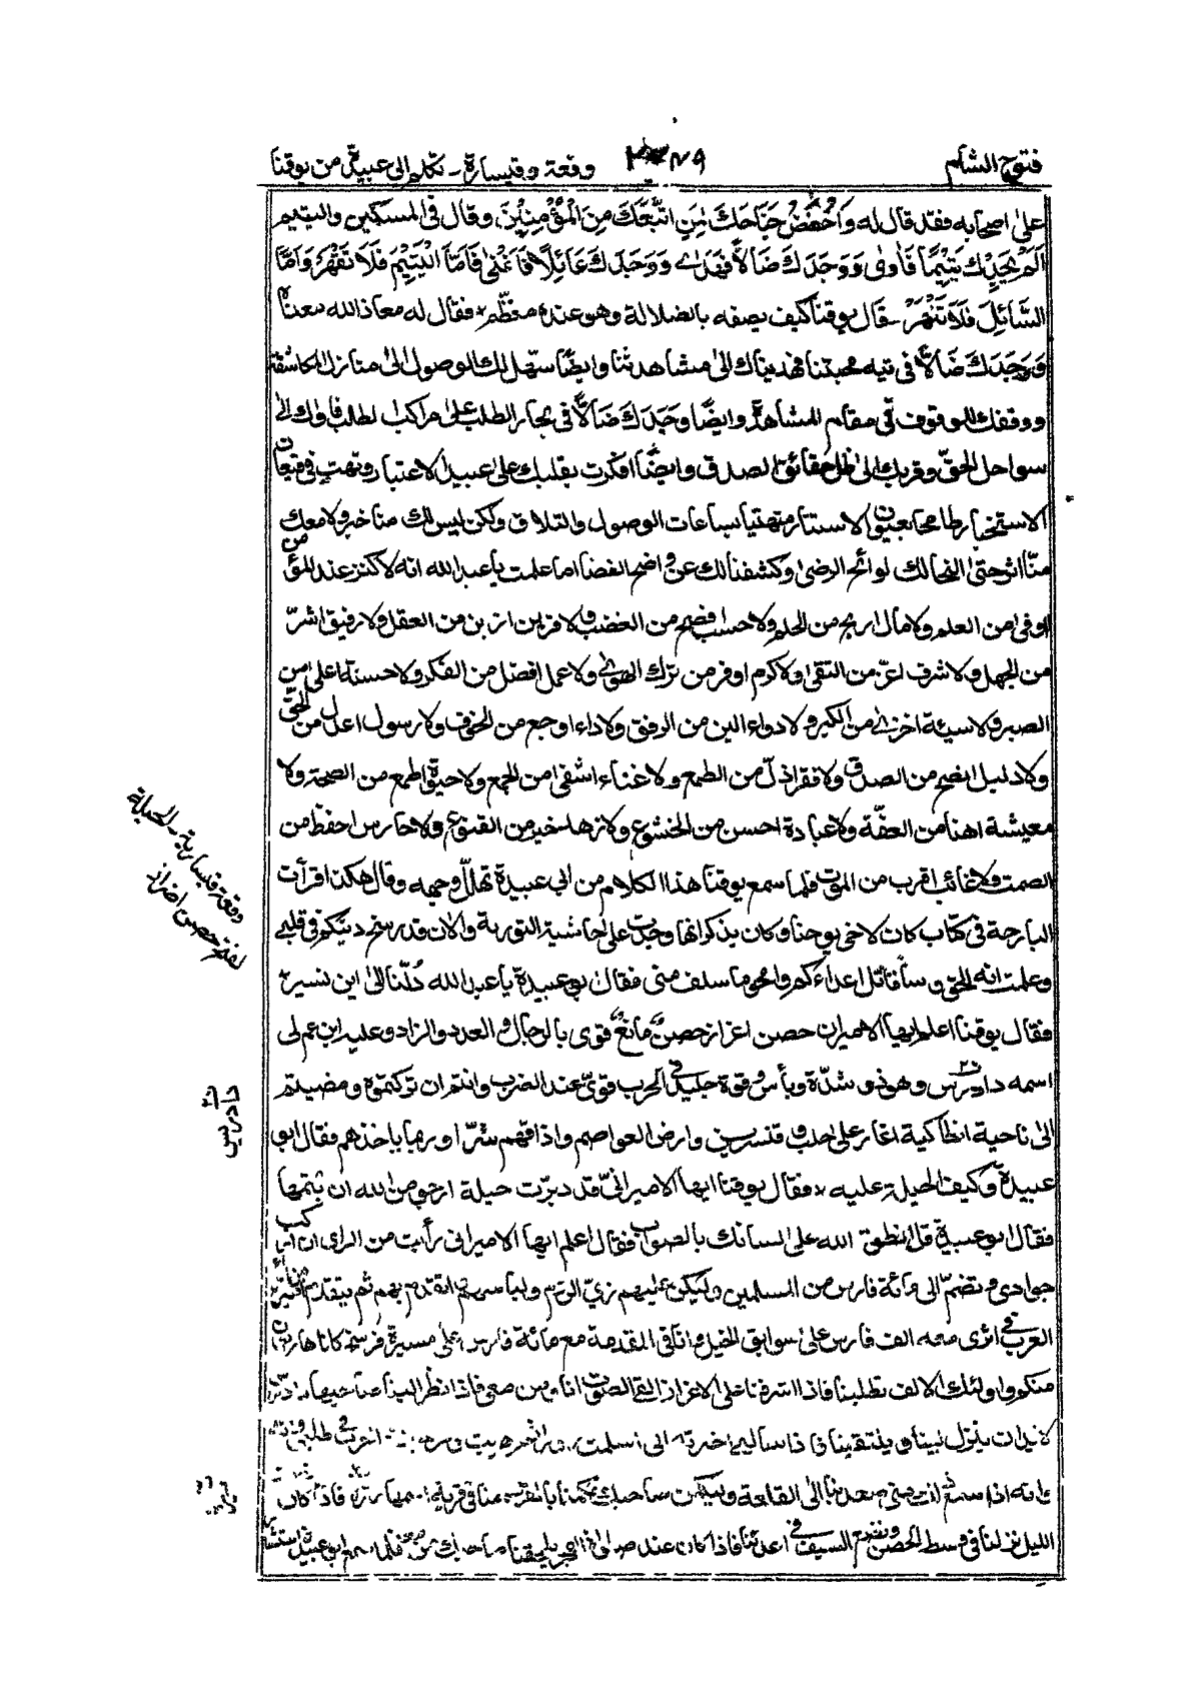 فتوح الشام ٢٧٩ وقعة وقيسارة - تكلم ابى عبيدة من يوقنا
على اصحابه فقد قال له وَاخْفِضْ جَنَاحَكَ لِمَنِ اتَّبَعَكَ مِنَ الْمُؤْمِنِيْنَ وقال فى المسكين واليتيم
اَلَمْ يَجِدْكَ يَتِيْمًا فَاٰوٰى وَوَجَدَكَ ضَالًّا فَهَدٰى وَوَجَدَكَ عَائِلًا فَاَغْنٰى فَاَمَّا الْيَتِيْمَ فَلَا تَقْهَرْ وَاَمَّا
السَّائِلَ فَلَا تَنْهَرْ - قال يوقنا كيف يصفه بالضلالة وهو عنده معظّم فقال له معاذ الله معناه
وَوَجَدَكَ ضَالًّا فى تيه محبتنا فهديناك الى مشاهدتنا وايضًا سهّل لك الوصول الى منازل المكاشفة
ووقفك للوقوف فى مقام المشاهدة وايضًا وجدك ضالًّا فى بحار الطلب على مراكب الطلب فاواك الى
سواحل الحقّ وقربك الى ظل حقائق الصدق وايضًا افكرت بقلبك على عبيد الاعتبار وتهت فى قيعان
الاستخبار طامحا بعيون الاستتار متهتيا بساعات الوصول والتلاق ولكن ليس لك منا خبر ولا معك
منّا اثر حتى الفحالك لوائح الرضى وكشفنا لك عن واضح القضا اما علمت يا عبد الله انه لا كنز عند المؤمن
اوفى من العلم ولا مال اربح من الحلم ولا حساب افضح من الغضب ولا قرين ازين من العقل ولا رفيق اشرّ
من الجهل ولا شرف اعزّ من التقى ولا كرم اوفر من ترك الهوى ولا عمل افضل من الفكر ولا حسنة اعلى من
الصبر ولا سيئة اخزى من الكبر ولا دواء الين من الرفق ولا داء اوجع من الخرق ولا رسول اعدل من الحقّ
ولا دليل انصح من الصدق ولا فقر اذلّ من الطمع ولا غناء اشفى من الجمع ولا حيوة اطمع من الصحة ولا
معيشة اهنا من العفّة ولا عبادة احسن من الخشوع ولا زهد خير من القنوع ولا حارس احفظ من
الصمت ولا غائب اقرب من الموت فلما سمع يوقنا هذا الكلام من ابى عبيدة تهلّل وجهه وقال هكذا قرأت
البارحة فى كتاب كان لاخى يوحنا وكان يذكر انها وجدت على حاشية التورية والان قد رسخ دينكم فى قلبى
وعلمت انه الحق وسأقاتل اعداءكم وامحو ما سلف منى فقال ابو عبيدة يا عبد الله دُلّنا الى اين نسير
فقال يوقنا اعلم ايها الامير ان حصن اعزاز حصنٌ مانعٌ قوى بالرجال والعدد والزاد وعليه ابن عم لى
اسمه دادرس وهو ذو شدّة وبأس وقوة جليد فى الحرب قوىّ عند الضرب وانتم ان تركتموه ومضيتم
الى ناحية انطاكية اغار على حلب وقنسرين وارض العواصم واذاقهم شرّا وربما ياخذهم فقال ابو
عبيدة وكيف الحيلة عليه فقال يوقنا ايها الامير انّى قد دبرّت حيلة ارجو من الله ان يتمّها
فقال ابو عبيدة قل انطق الله على لسانك بالصواب فقال اعلم ايها الامير انى رأيت من الراى ان اركب
جوادى وتضمّ الى مائة فارس من المسلمين وليكن عليهم زىّ الروم ولباسهم اتقدم بهم ثم يتقدم امير من امراء
العرب فى اثرى معه الف فارس على سوابق الخيل وانا فى المقدمة مع مائة فارس على مسيرة فرسخ كانا هاربون
منكم واولئك الالف تطلبنا فاذا اشرفنا على الاعزاز القى الصوت انا ومن معى فاذا نظر الينا صاحبها
لا بد ان ينزل الينا ويلتقينا فاذا سالنى اخبرته انى اسلمت هربت والعرب فى طلبى
فانه اذا سمع ذلك منى يصعدنا الى القلعة وليكن صاحبك مكمنا بالقرب منا فى قرية فاذا كان
الليل نزلنا فى وسط الحصن ونضع السيف فى اعدائنا فاذا كان عند صلوة الفجر يلحقنا صاحبك فلما سمع ابو عبيدة استشار
وقعة قيسارية - الحيلة
لفتح حصن اعزاز
دادرس